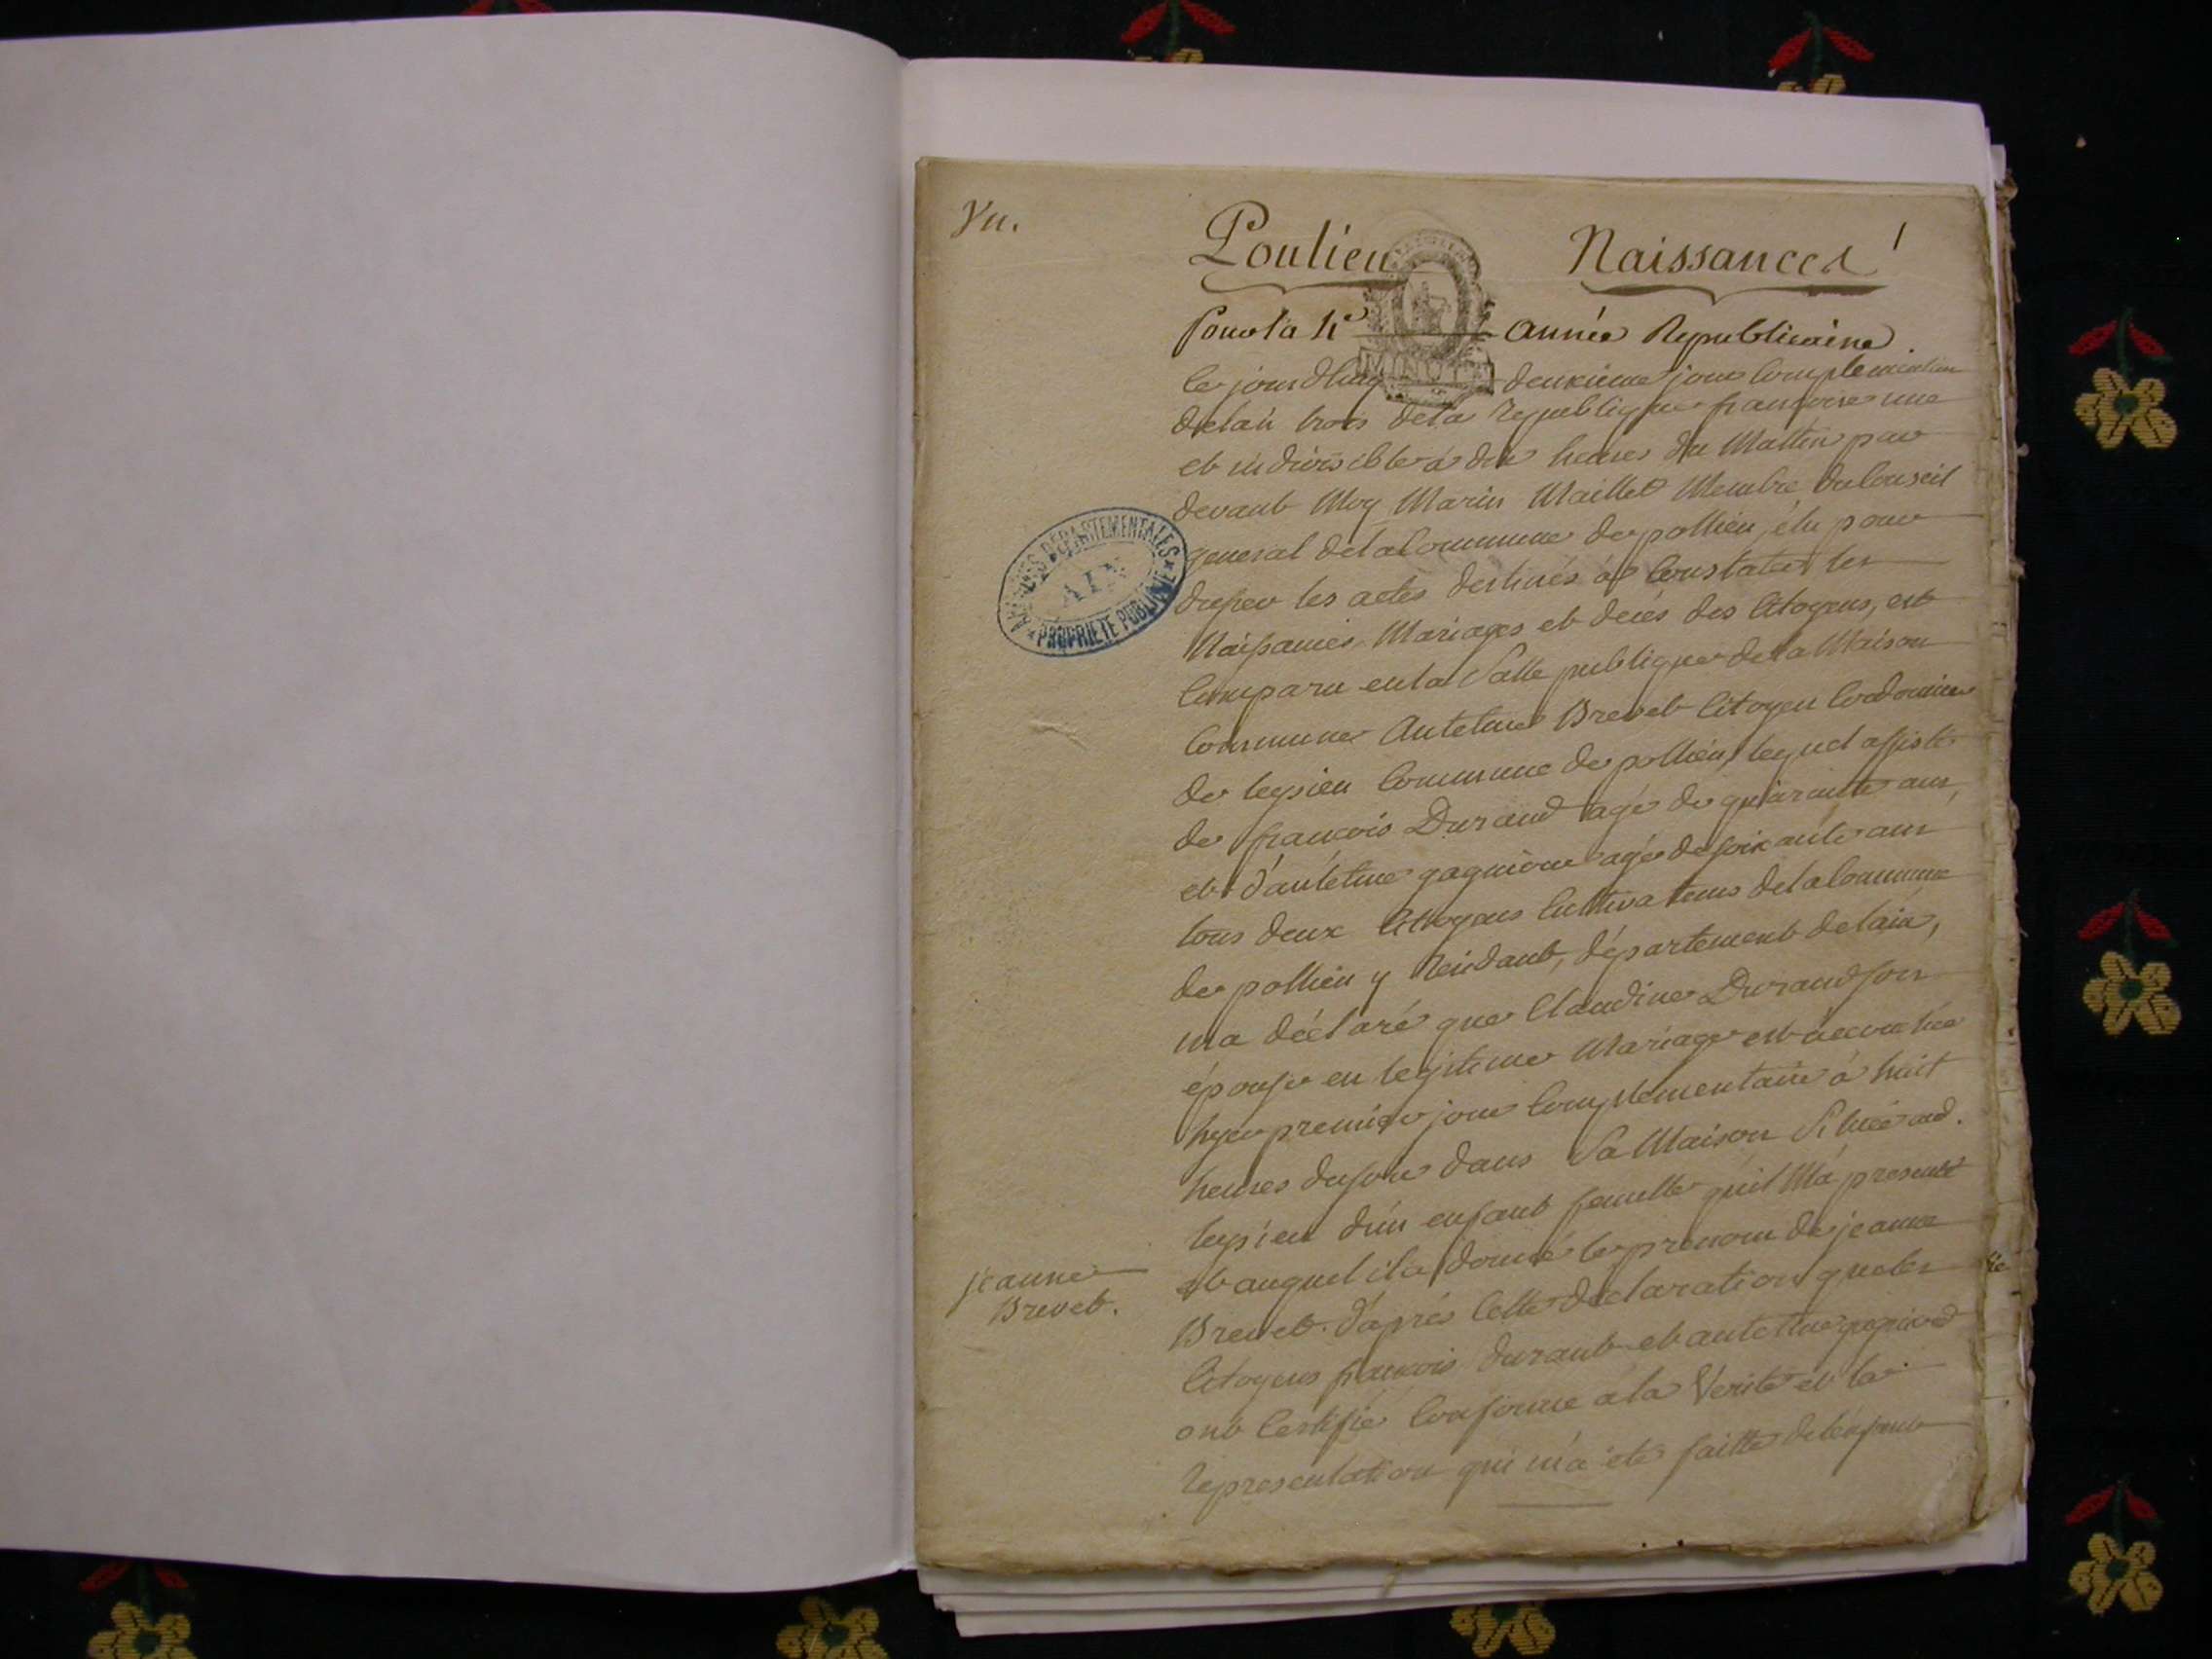 Vu.
Poulieu Naissances 1
Pour la 4e année Republicaine
Ce jourdhuy deuxieme jour Complementaire
de lan trois de la republique françoise une
et indivisible á dix heures du Mattin par
devant Moy Marin Maillet Membre du Conseil
general de la Commune de pollieu, élu pour
dresser les actes destinés á Constater les
Naissances Mariages et decés des Citoyens, est
Comparu en la Salle publique de la Maison
Commune Antelme Brevet Citoyen Cordonnier
de leysieu Commune de pollieu, lequel assisté
de francois Durand agé de quarante ans,
et d'antelme agé de soixante ans
tous deux Citoyens Cultivateurs de la Commune
de pollieu y Residant, département de lain,
ma déclaré que Claudine Durand son
épouse en legitime Mariage est accouchée
hyer premier jour Complémentaire á huit
heures du soir dans Sa Maison Située aud.
leysieu d'un enfant femelle qu'il M'a presenté
et auquel il a donné le prenom de jeanne
Brevet. d'aprés Cette declaration que les
Citoyens francois durant et antelme
ont Certifié Conforme á la Verité et la
representation qui m'a été faitte de lenfant
jeanne
Brevet.
ARCHIVES DEPARTEMENTALES
AIN
PROPRIETE PUBLIQUE